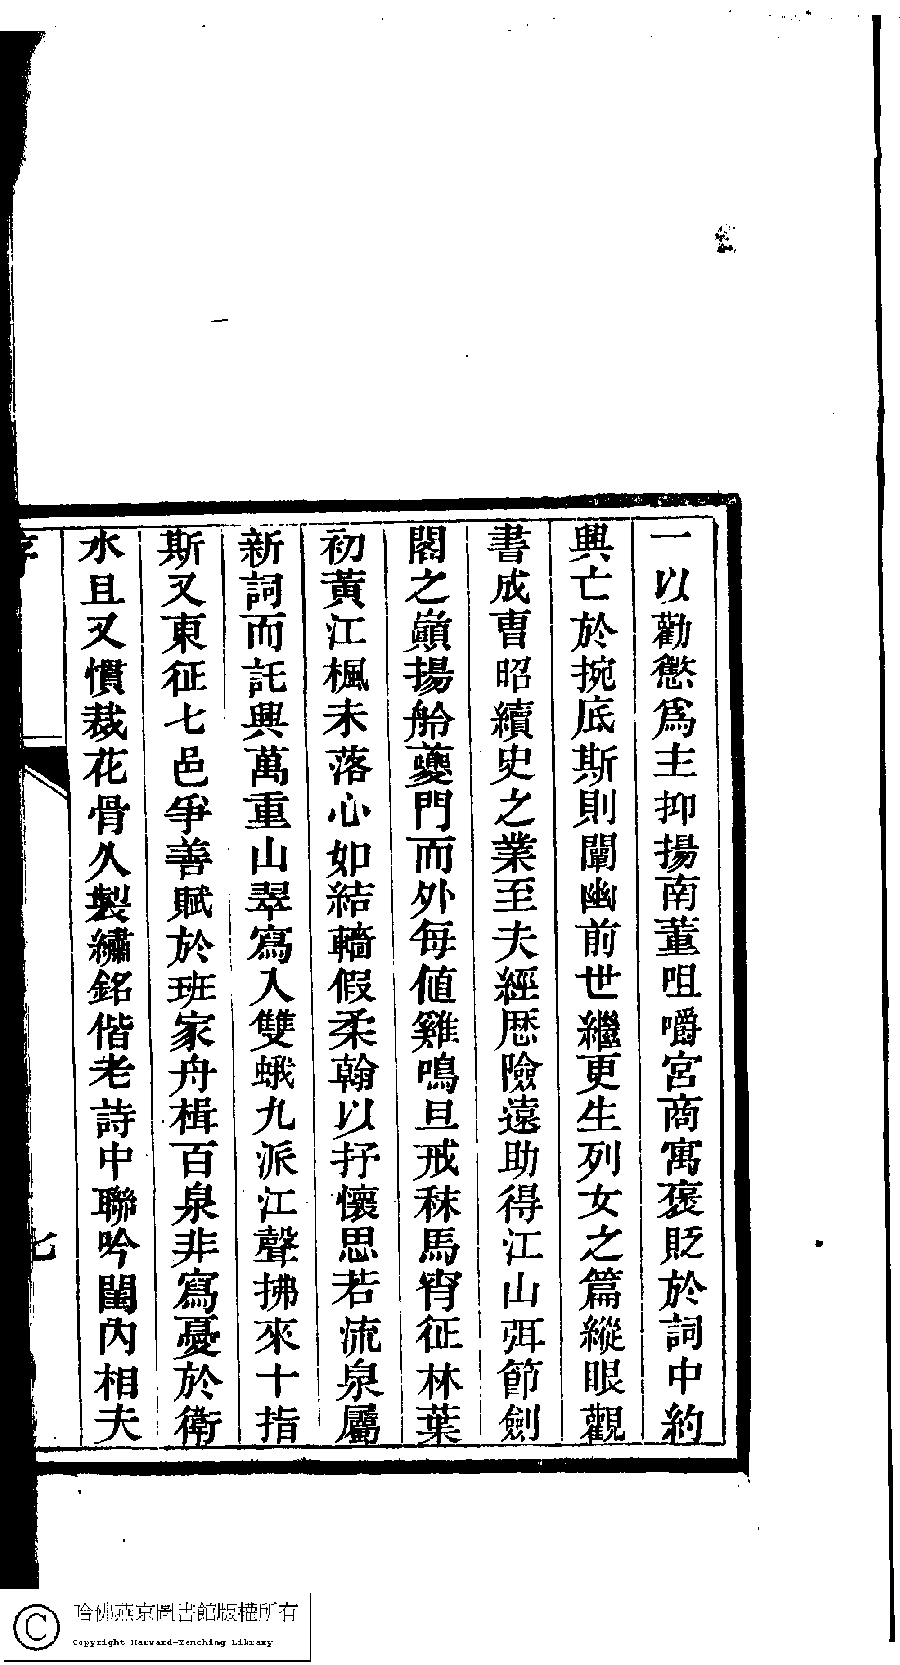 一以勸懲爲主抑揚南董咀嚼宮商寓褒貶於詞中約
興亡於掟底斯則闡幽前世繼更生列女之篇縱眼觀
書成曹昭續史之業至夫經歷險遠助得江山弭節劍
閣之巓揚舲夔門而外每値雞鳴旦戒秣馬宵征林葉
初黃江楓未落心如結轖假柔翰以抒懷思若流泉屬
新詞而託興萬重山翠寫入雙蛾九派江聲拂來十指
斯又東征七邑爭善賦於班家舟楫百泉非寫憂於衛
水且又慣裁花骨久製繡銘偕老詩中聯吟閨內相夫
序
七
哈佛燕京圖書館版權所有
Copyright Harvard-Yenching Library